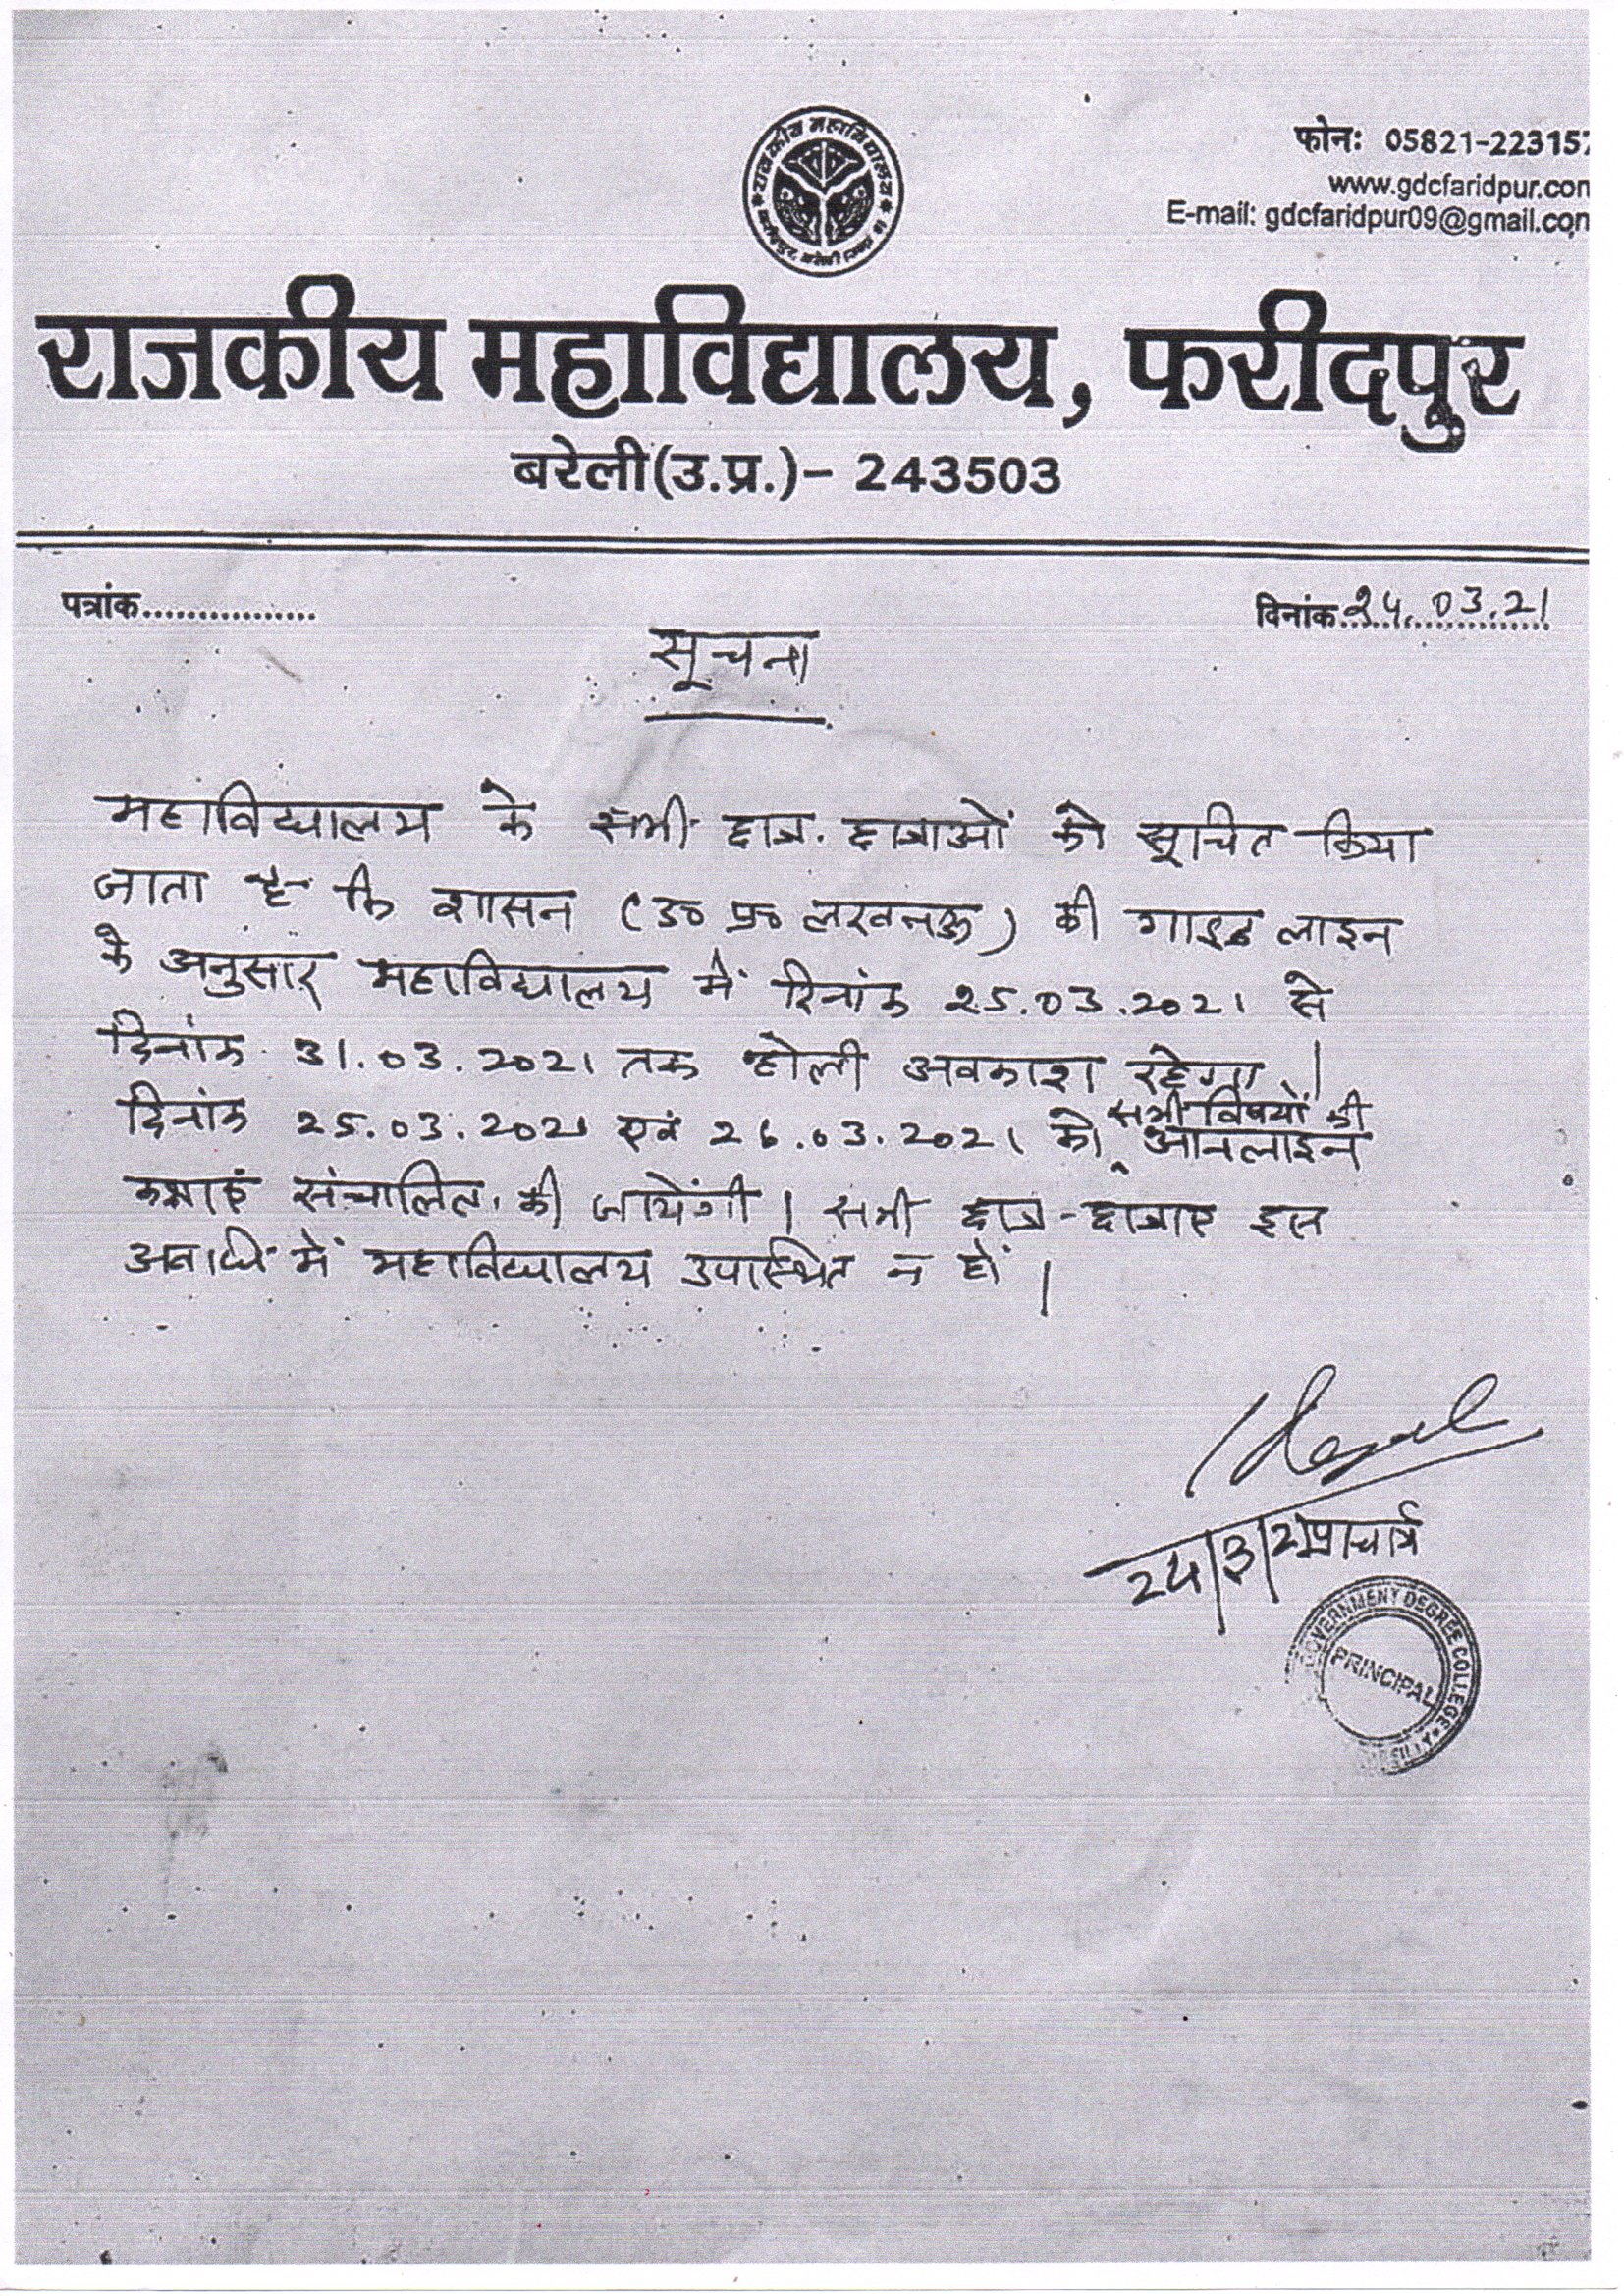 राजकीय महाविद्यालय
फरीदपुर, बरेली
फोन: 05821-223157
www.gdcfaridpur.con
E-mail: gdcfaridpur09@gmail.con
राजकीय महाविद्यालय, फरीदपुर
बरेली(उ.प्र.)- 243503
पत्रांक................
दिनांक 24.03.21
सूचना
महाविद्यालय के सभी छात्र-छात्राओं को सूचित किया
जाता है कि शासन (उ० प्र० लखनऊ) की गाइड लाइन
के अनुसार महाविद्यालय में दिनांक 25.03.2021 से
दिनांक 31.03.2021 तक होली अवकाश रहेगा।
दिनांक 25.03.2021 एवं 26.03.2021 को सभी विषयों की ऑनलाइन
कक्षाएं संचालित की जायेंगी। सभी छात्र-छात्राएं इस
अवधि में महाविद्यालय उपस्थित न हों।
24/3/21
प्राचार्य
GOVERNMENT DEGREE COLLEGE
PRINCIPAL